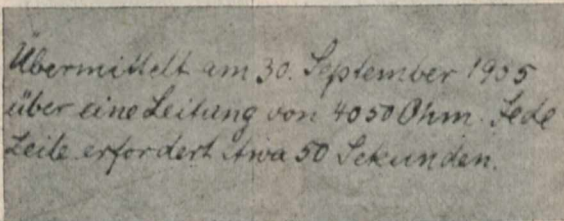 Übermittelt am 30. September 1905
über eine Leitung von 4050 Ohm. Jede
Zeile erfordert etwa 50 Sekunden.